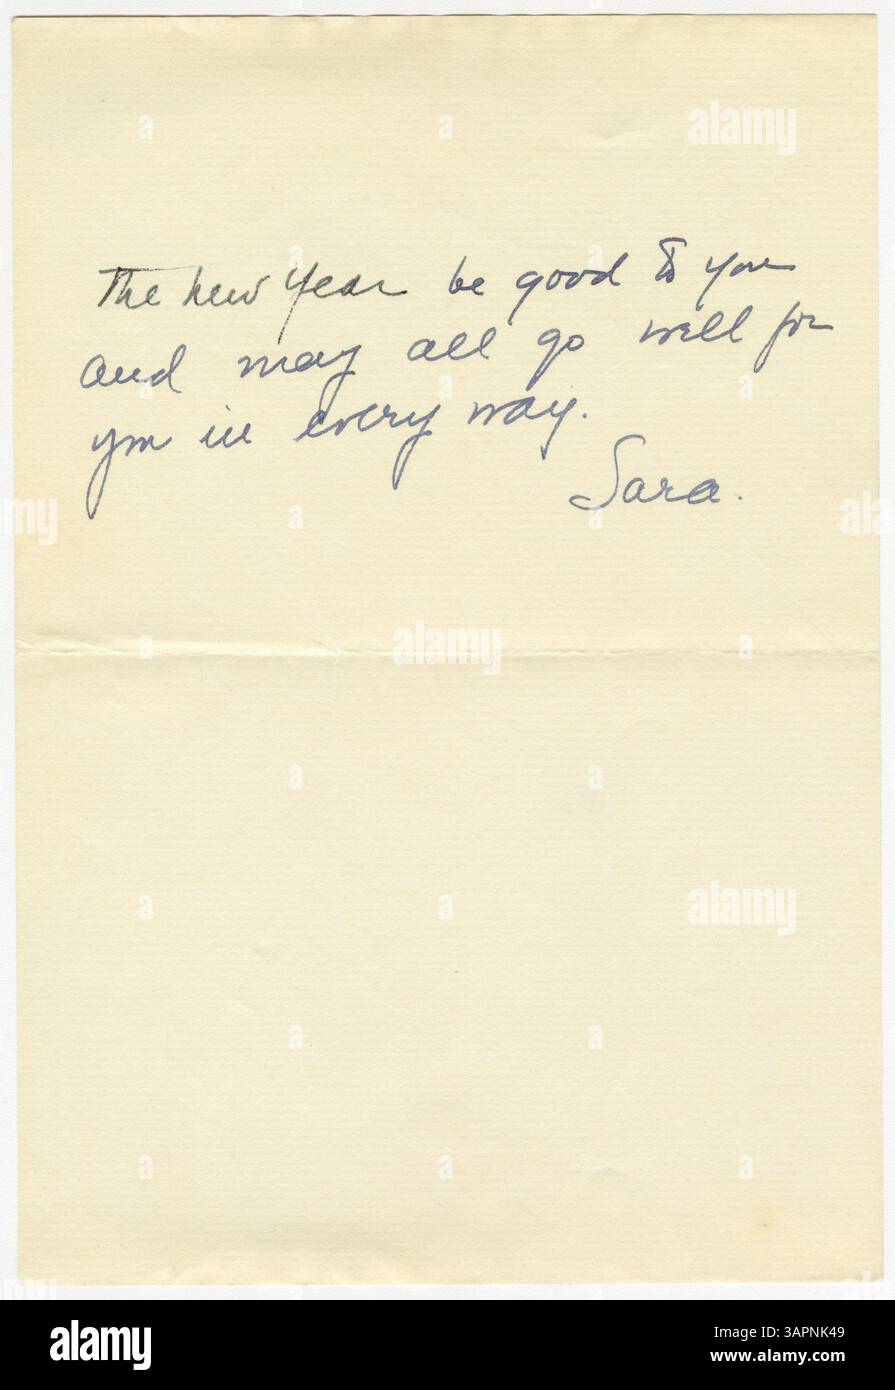 The new Year be good to you
and may all go well for
you in every way.
Sara.
alamy
Image ID: 3APNK49
www.alamy.com